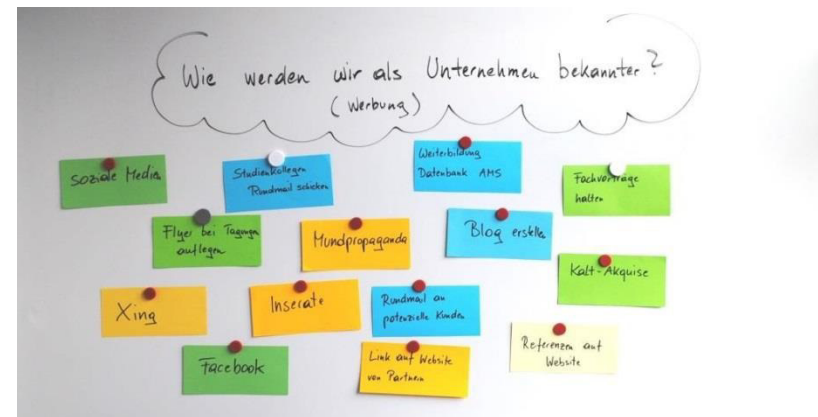 Wie werden wir als Unternehmen bekannter?
(Werbung)
Soziale Media
Studienkollegen
Rundmail schicken
Weiterbildung
Datenbank AMS
Fachvorträge
halten
Flyer bei Tagungen
auflegen
Mundpropaganda
Blog erstellen
Kalt-Akquise
Xing
Inserate
Rundmail an
potenzielle Kunden
Referenzen auf
Website
Facebook
Link auf Website
von Partnern